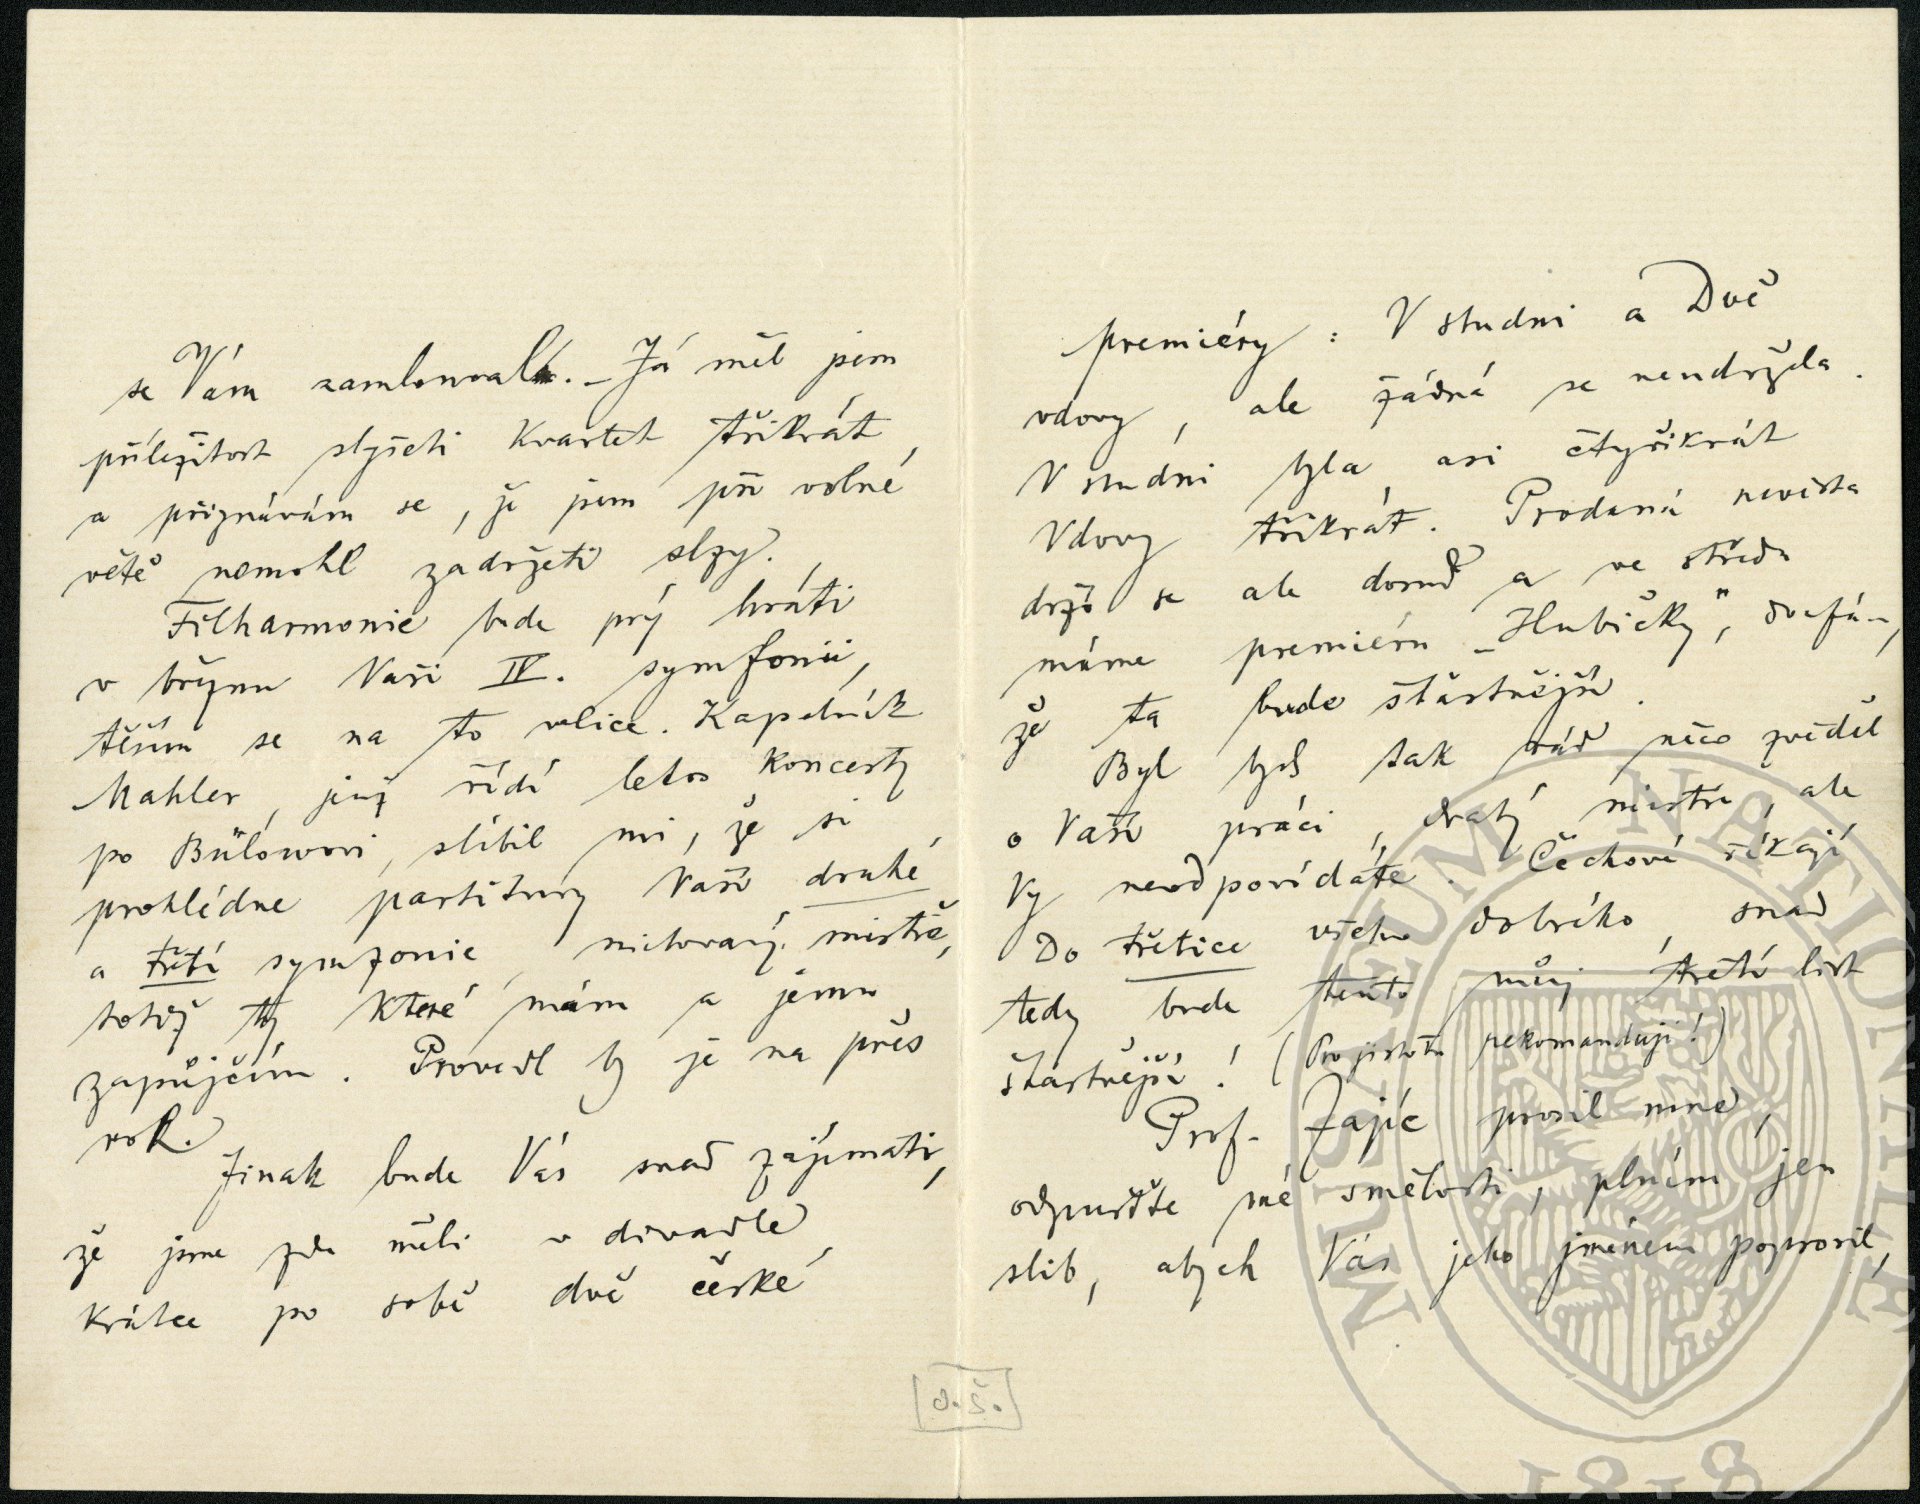 se Vám zamlouval. – Já měl jsem
příležitost slyšeti kvartet třikrát
a přiznávám se, že jsem při volné
větě nemohl zadržeti slzy.
Filharmonie bude prý hráti
v březnu Vaši IV. symfonii,
těším se na to velice. Kapelník
Mahler, jenž řídí letos koncerty
po Bülowovi, slíbil mi, že si
prohlédne partitury Vaší druhé
a třetí symfonie, milovaný mistře,
totiž ty které mám a jemu
zapůjčím. Provedl by je na přes
rok.
Jinak bude Vás snad zajímati,
že jsme zde měli v divadle
krátce po sobě dvě české
premiéry: V studni a Dvě
vdovy, ale žádná se neudržela.
V studni byla asi čtyřikrát
Vdovy třikrát. Prodaná nevěsta
drží se ale dosud a ve středu
máme premiéru „Hubičky", doufám,
že ta bude šťastnější.
Byl bych tak rád něco zvěděl
o Vaší práci, drahý mistře, ale
Vy neodpovídáte. Čechové říkají
Do třetice všeho dobrého, snad
tedy bude tento můj třetí list
šťastnější! (Pro jistotu rekomanduji!)
Prof. Zajíc prosil mne,
odpusťte mé smělosti, plním jen
slib, abych Vás jeho jménem poprosil,
MUSAEUM NATIONALE
1818